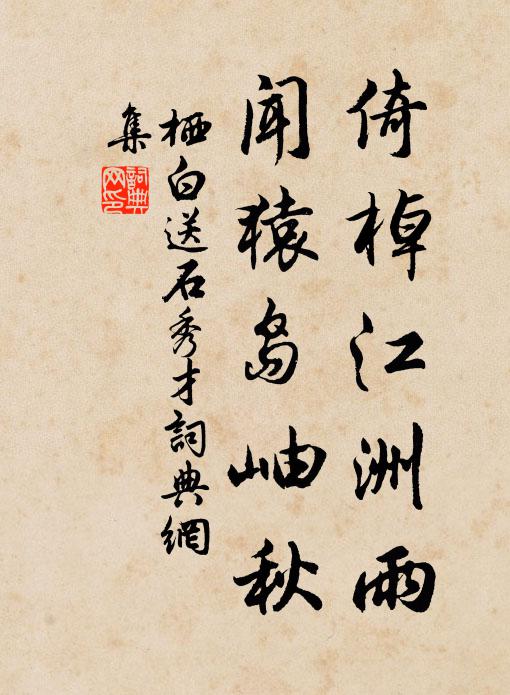 倚棹江洲雨
闻猿岛岫秋
栖白送石秀才詞典網
集
詞典网印